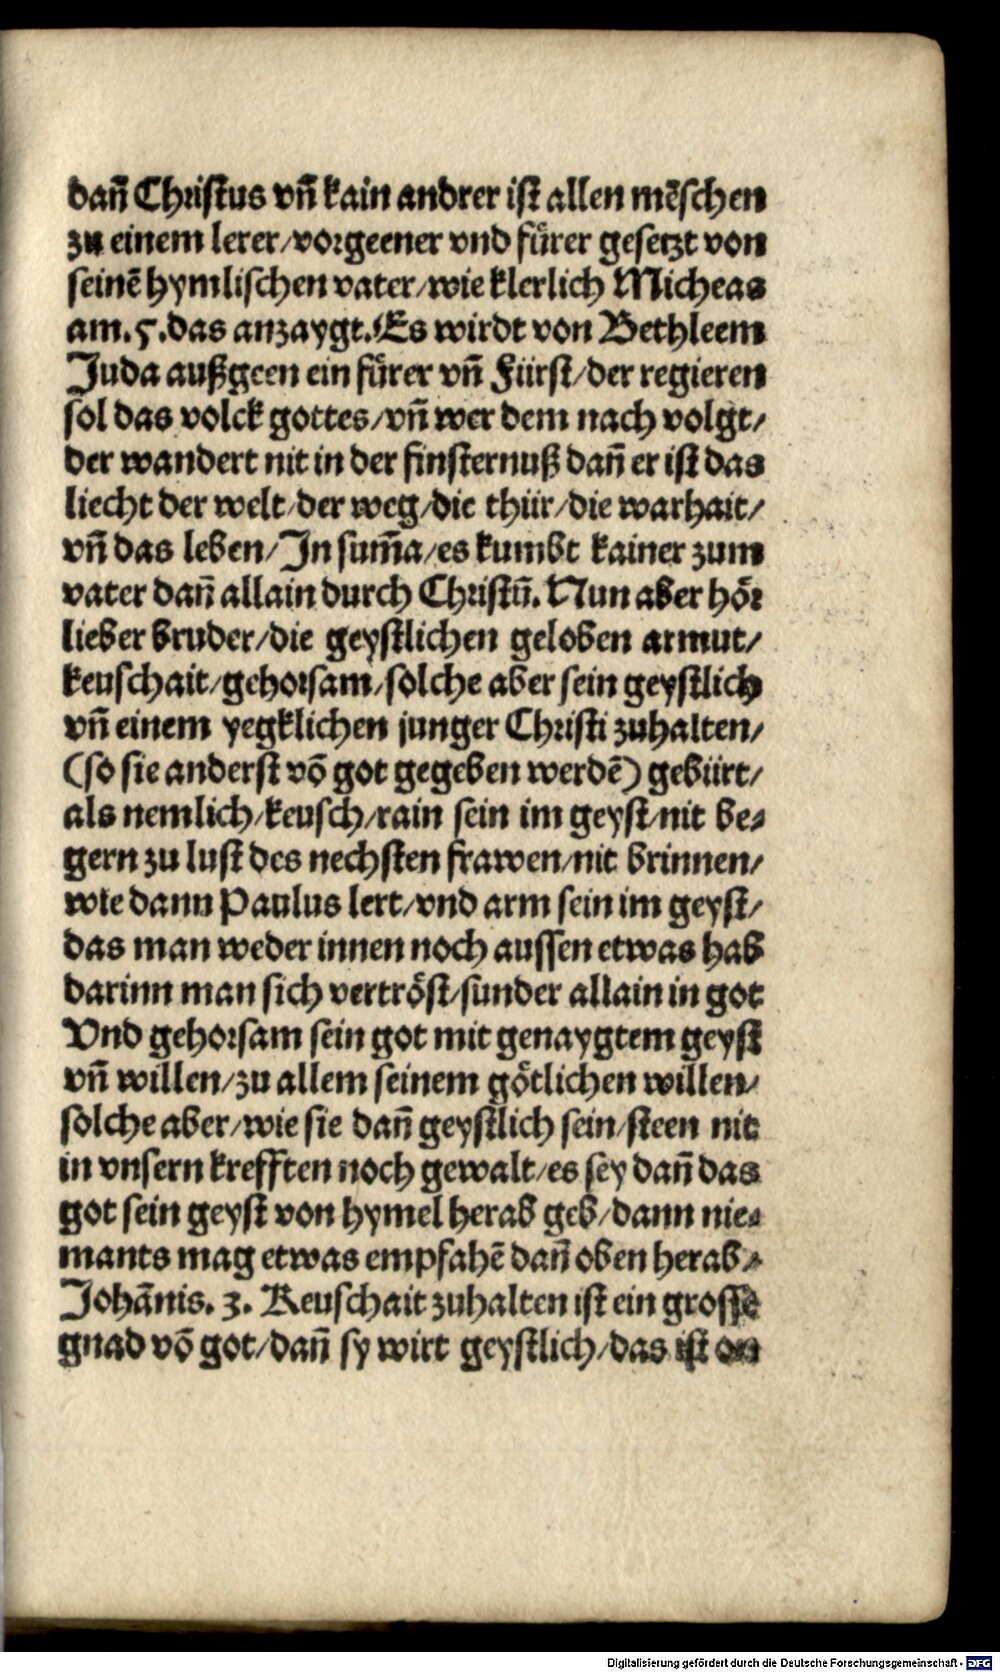 dañ Christus vñ kain andrer ist allen mēschen
zu einem lerer/vorgeener vnd fürer gesetzt von
seinē hymlischen vater/wie klerlich Micheas
am.5.das anzaygt.Es wirdt von Bethleem
Juda außgeen ein fürer vñ Fürst/der regieren
sol das volck gottes/vñ wer dem nach volgt/
der wandert nit in der finsternuß dañ er ist das
liecht der welt/der weg/die thür/die warhait/
vñ das leben/In sum̄a/es kumbt kainer zum
vater dañ allain durch Christū. Nun aber hör
lieber bruder/die geystlichen geloben armut/
keuschait/gehorsam/solche aber sein geystlich
vñ einem yegklichen junger Christi zuhalten/
(so sie anderst vō got gegeben werdē) gebürt/
als nemlich/keusch/rain sein im geyst/nit be⸗
gern zu lust des nechsten frawen/nit brinnen/
wie dann Paulus lert/vnd arm sein im geyst/
das man weder innen noch aussen etwas hab
darinn man sich vertröst/sunder allain in got
Vnd gehorsam sein got mit genaygtem geyst
vñ willen/zu allem seinem götlichen willen/
solche aber/wie sie dañ geystlich sein/steen nit
in vnsern krefften noch gewalt/es sey dañ das
got sein geyst von hymel herab geb/dann nie⸗
mants mag etwas empfahē dañ oben herab/
Johānis. 3. Keuschait zuhalten ist ein grosse
gnad vō got/dañ sy wirt geystlich/das ist on
Digitalisierung gefördert durch die Deutsche Forschungsgemeinschaft - DFG